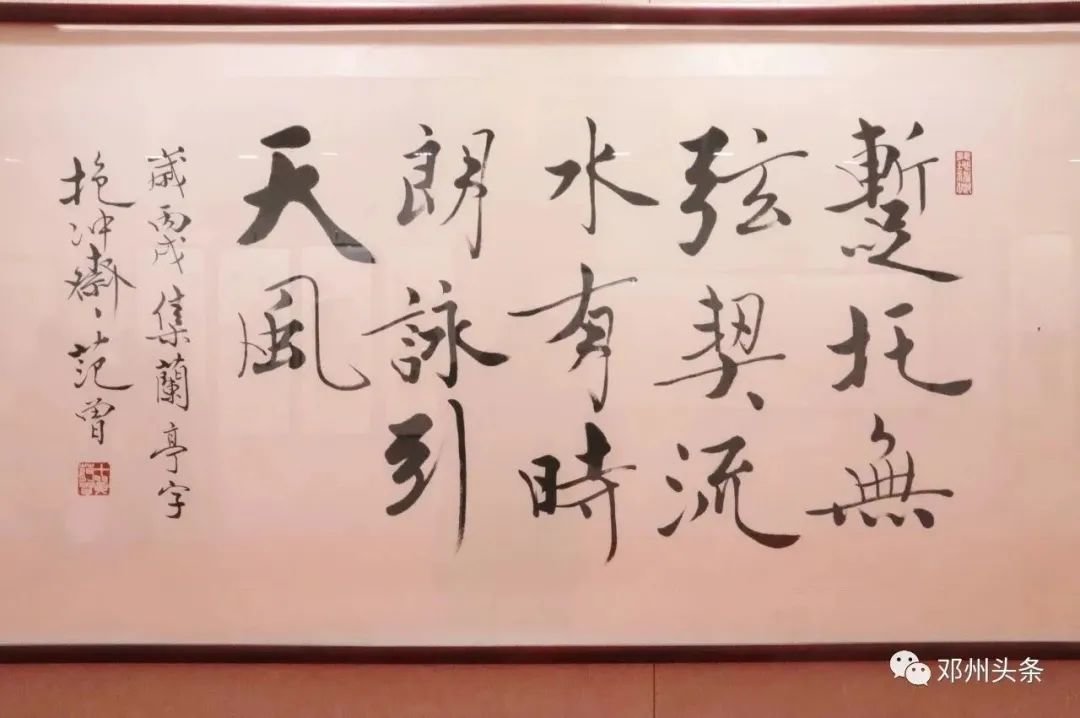 蹔托無
弦契流
水有時
朗詠引
天風
歲丙戌集蘭亭字
抱冲齋范曾
邓州头条